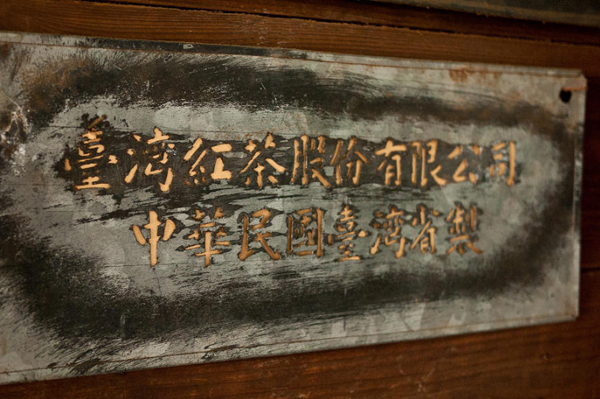 臺灣紅茶股份有限公司
中華民國臺灣省製